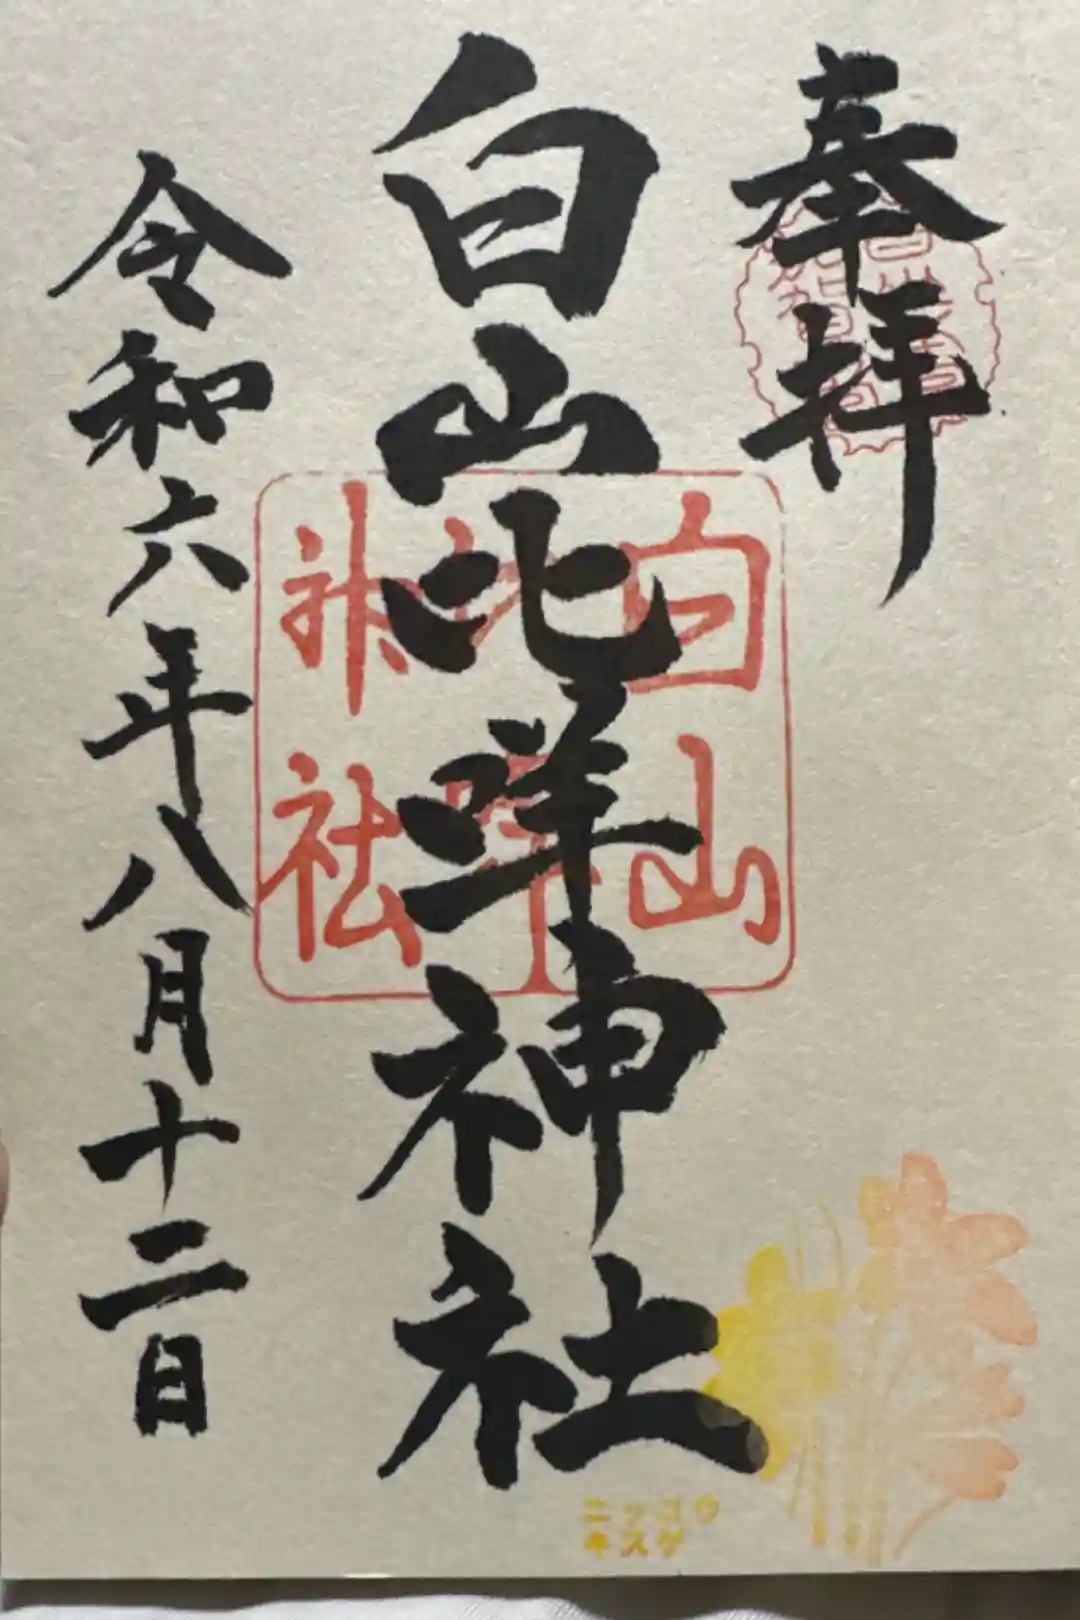 奉拝
白山比咩神社
白山比咩神社
令和六年八月十二日
ニッコウ
キスゲ